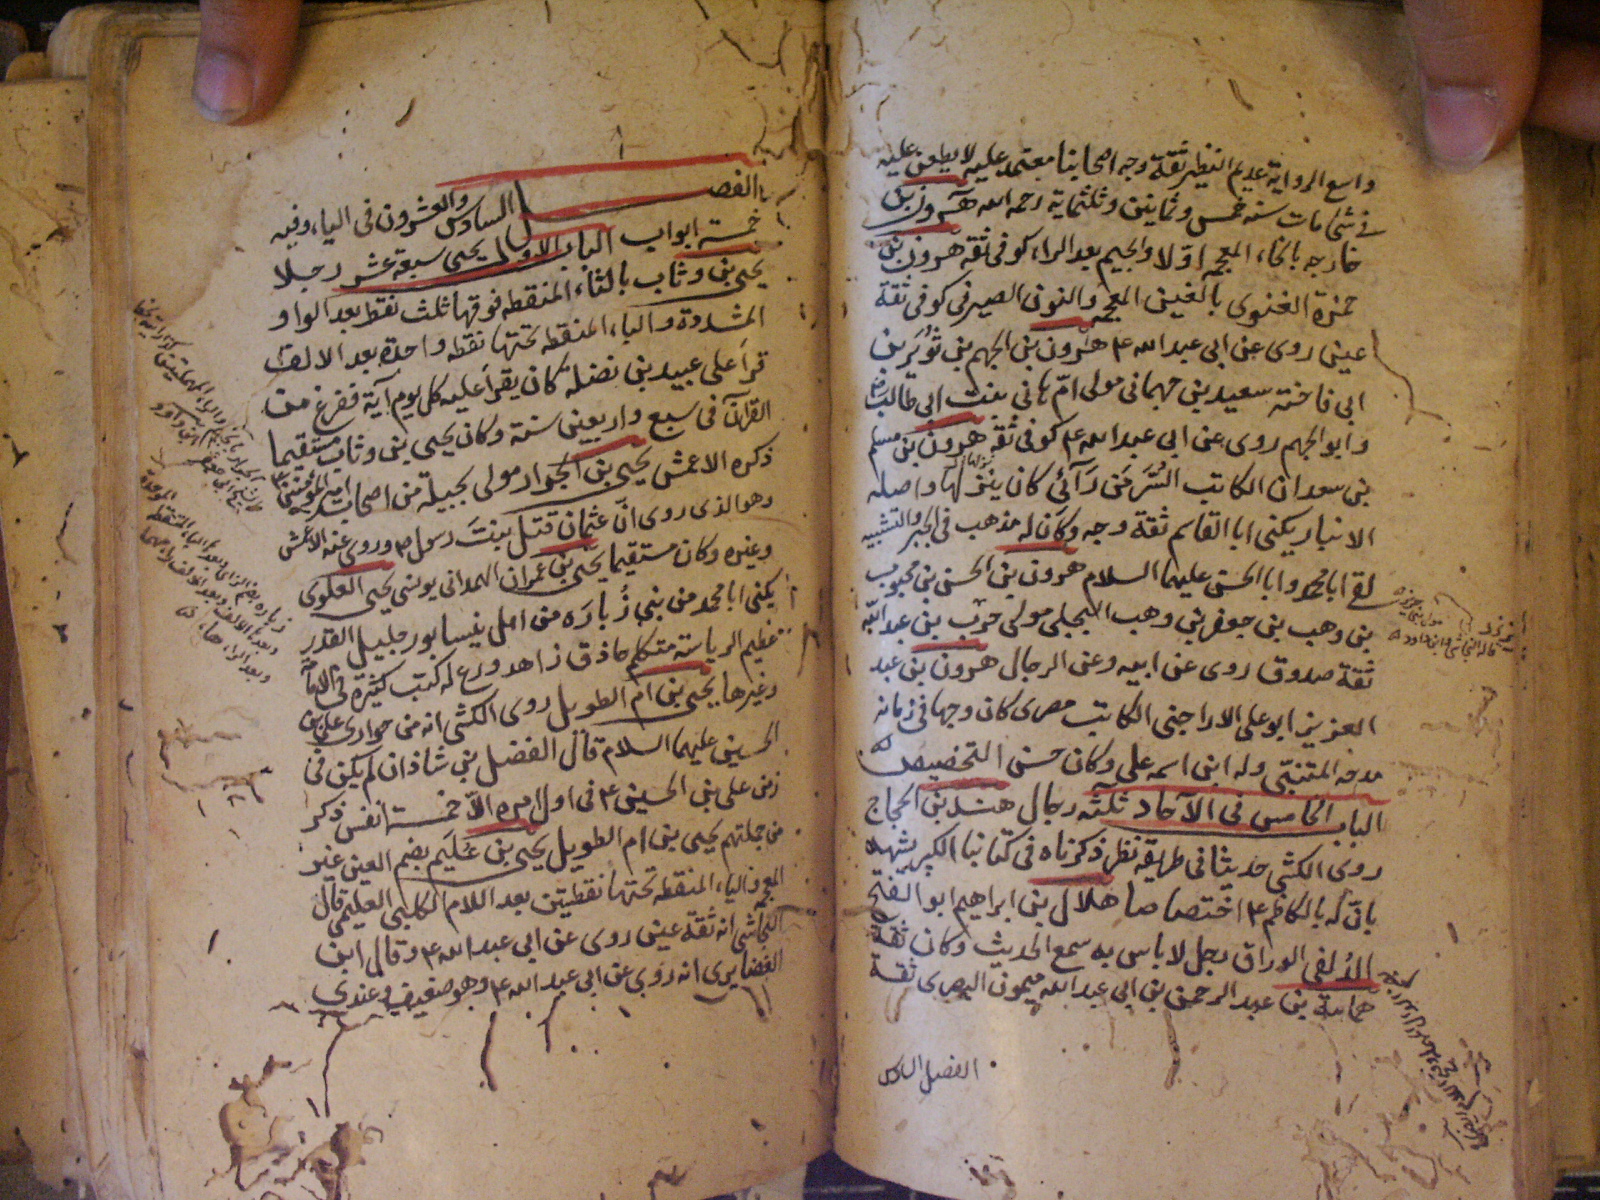 واسع الرواية عديم النظير ثقة وجه اصحابنا معتمد عليه لا يطعن عليه
في شئ مات سنة خمس وثمانين وثلثماية رحمه الله هرون بن
خارجه بالخاء المعجمة اولا والجيم بعد الراء كوفى ثقه هرون بن
حمزة الغنوى بالغين المعجمة والنون الصيرفى كوفى ثقة
عين روى عن ابى عبد الله ع هرون بن الجهم بن ثوير بن
ابى فاخته سعيد بن جهمان مولى ام هانى بنت ابى طالب
وابو الجهم روى عن ابى عبد الله ع كوفى ثقة هرون بن مسلم
بن سعدان الكاتب السر من رآئى كان ينزلها واصله
الانبار يكنى ابا القاسم ثقة وجه وكان له مذهب فى الجبر والتشبيه
لقى ابا محمد وابا الحسن عليهما السلام هرون بن الحسن بن محبوب
بن وهب بن جعفر بن وهب البجلى مولى جرير بن عبد الله
ثقة صدوق روى عن ابيه وعن الرجال هرون بن عبد
العزيز ابو على الاراجنى الكاتب مصرى كان وجها فى زمانه
مدحه المتنبى وله ابن اسمه على وكان حسن التخصيص
الباب الخامس فى الآحاد ثلثة رجال هند بن الحجاج
روى الكشى حديثا فى طريقه نظر ذكرناه فى كتابنا الكبير يشهد
بان له بالكاظم ع اختصاصا هلال بن ابراهيم ابو الفتح
الدلفى الوراق رجل لا باس به سمع الحديث وكان ثقة
بن عبد الرحمن بن ابى عبد الله ميمون البصرى ثقة
الفصل السادس
الفصل السادس والعشرون فى الياء وفيه
خمسة ابواب الباب الاول يحيى سبعة عشر رجلا
يحيى بن وثاب بالثاء المنقطه فوقها ثلث نقط بعد الواو
المشددة والباء المنقطه تحتها نقطه واحدة بعد الالف
قرأ على عبيد بن نضلة كان يقرأ عليه كل يوم آية ففرغ من
القرآن فى سبع واربعين سنة وكان يحيى بن وثاب مستقيما
ذكره الاعمش يحيى بن الجزار مولى بجيلة من اصحاب امير المؤمنين
وهو الذى روى ان عثمان قتل بنت رسول ص وروى عنه الاعمش
وغيره وكان مستقيما يحيى بن عمران الهمدانى يونسى يحيى العلوى
يكنى ابا محمد من بنى زبارة من اهل نيسابور جليل القدر
عظيم الرياسة متكلم حاذق زاهد ورع له كتب كثيرة فى الامامة
وغيرها يحيى بن ام الطويل روى الكشى انه من حوارى على بن
الحسين عليهما السلام قال الفضل بن شاذان لم يكن فى
زمن على بن الحسين ع فى اول امره الا خمسة انفس ذكر
من جملتهم يحيى بن ام الطويل يحيى بن عليم بضم العين غير
المعجمة والياء المنقطه تحتها نقطتين بعد اللام الكلبى العليمى قال
النجاشى انه ثقة عين روى عن ابى عبد الله ع وقال ابن
الغضايرى انه روى عن ابى عبد الله ع وهو ضعيف وعندى